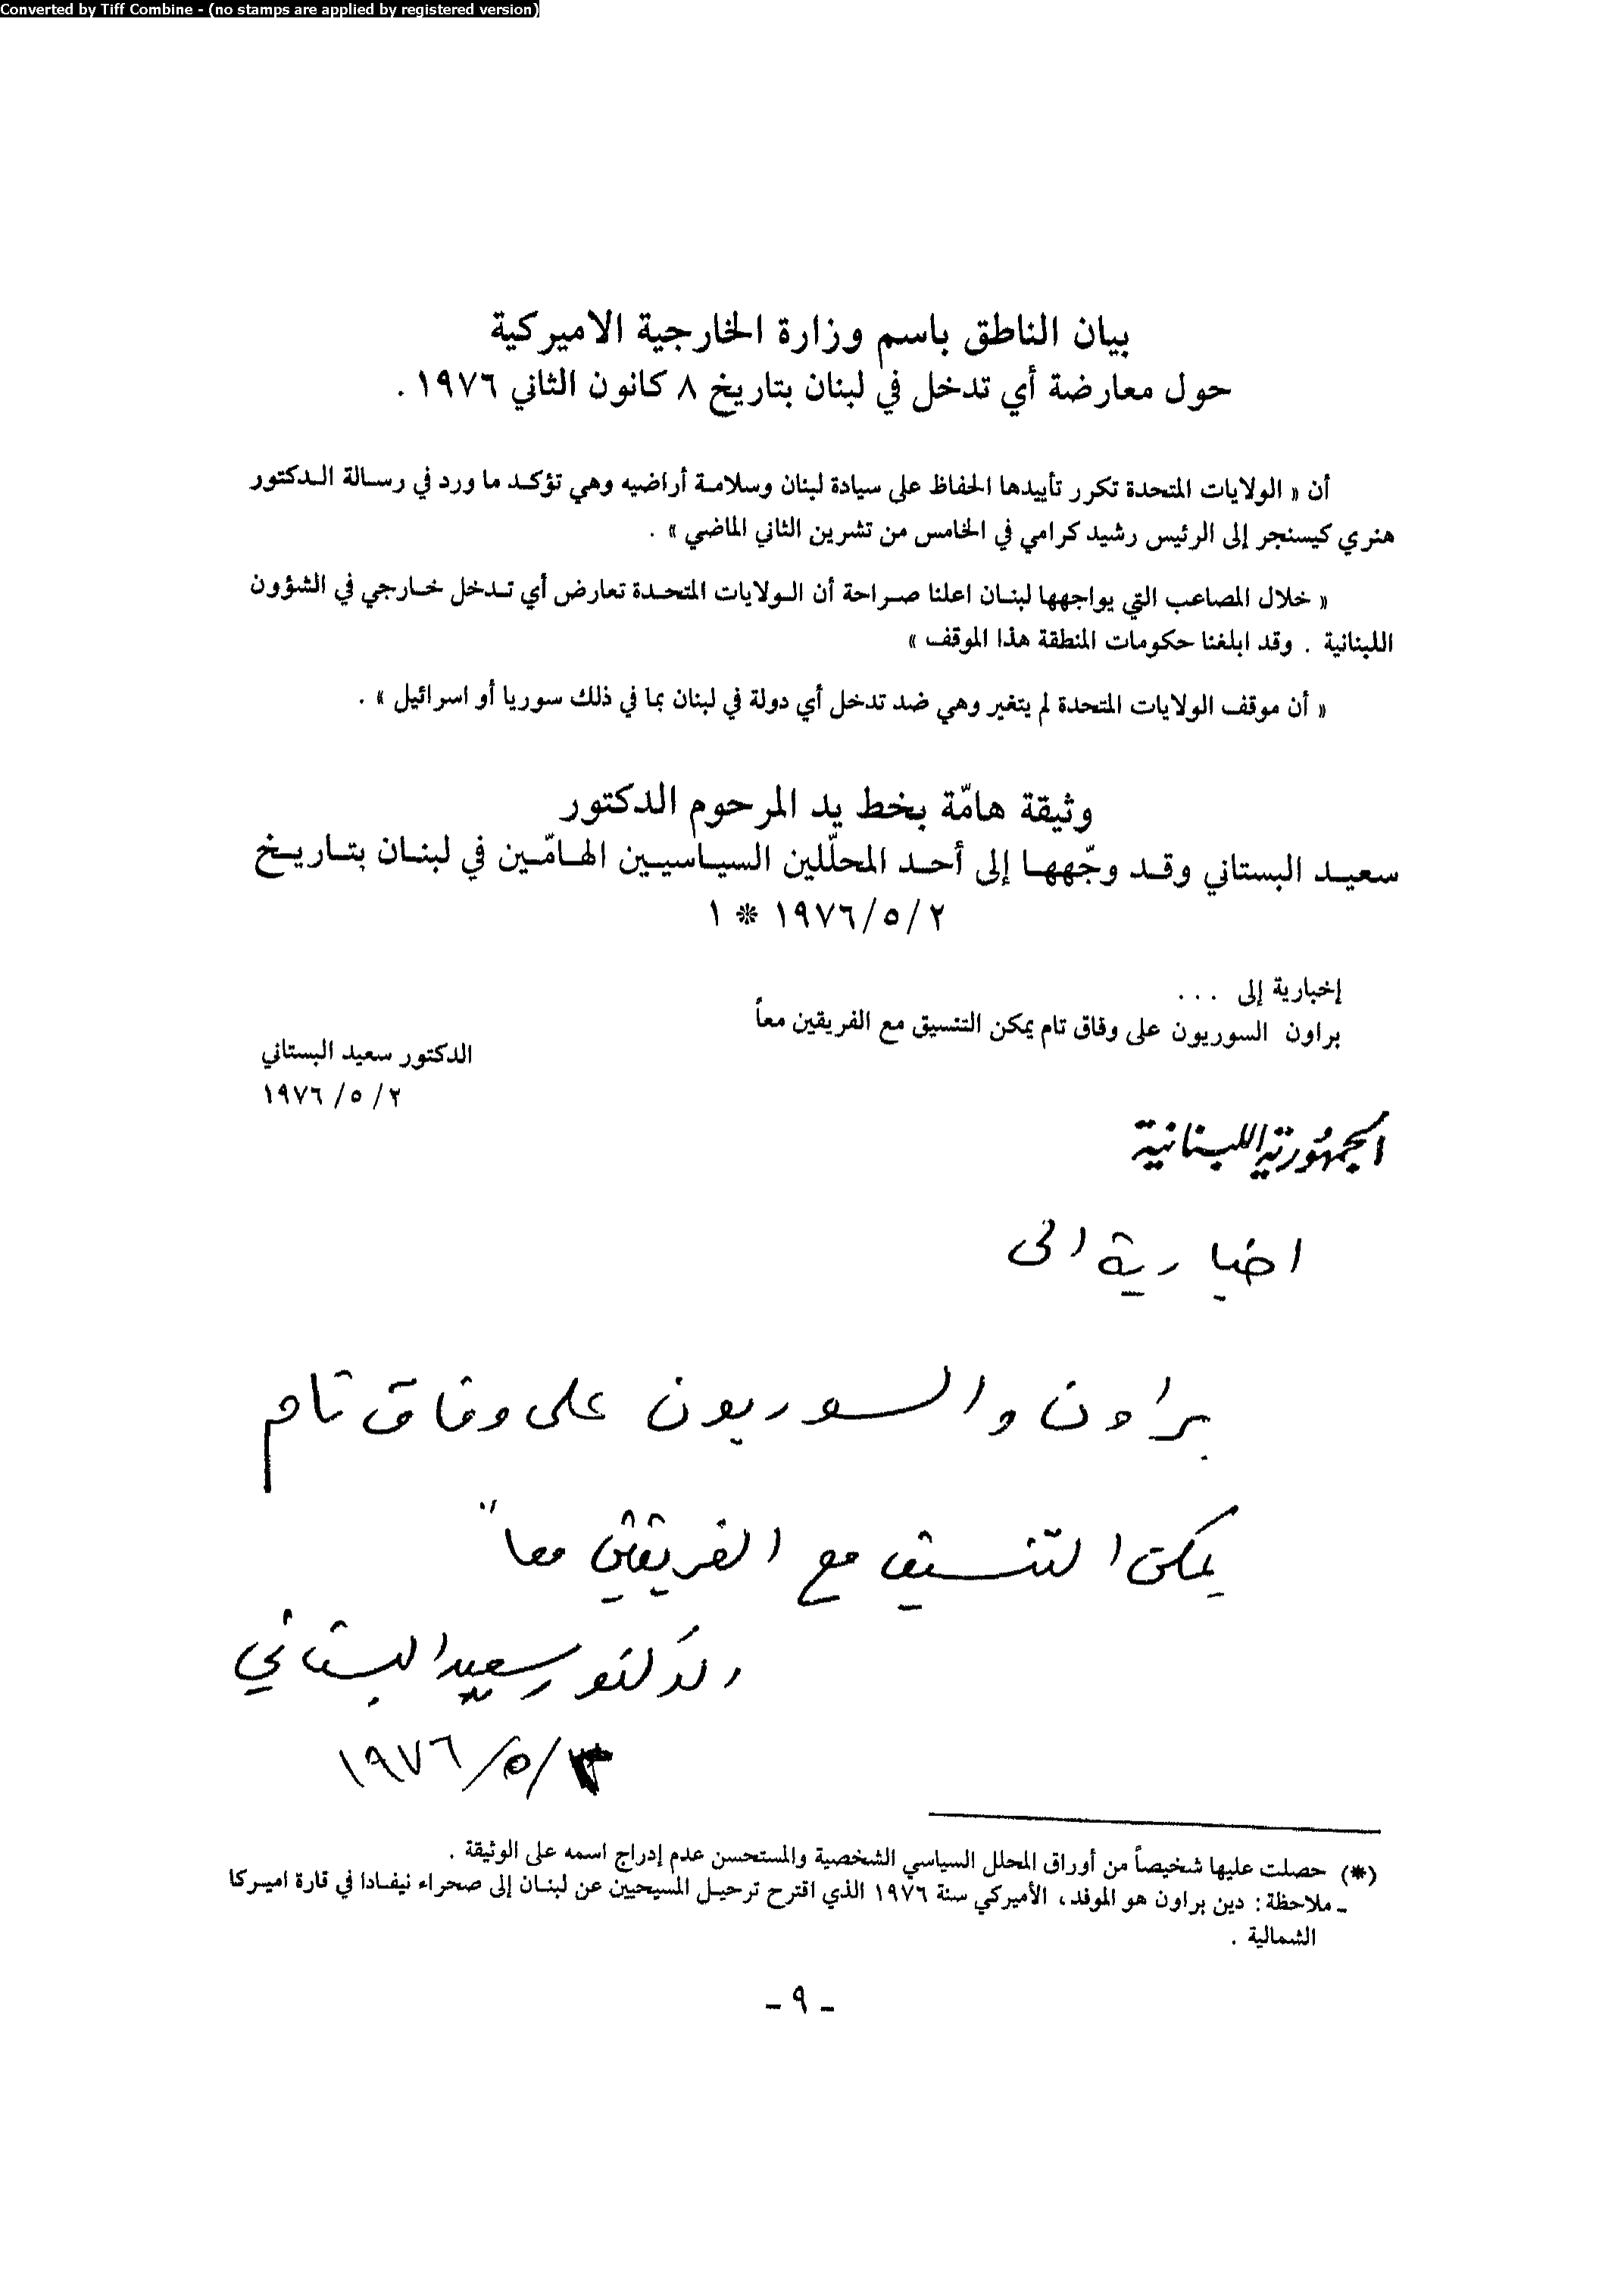 Converted by Tiff Combine - (no stamps are applied by registered version)
بيان الناطق باسم وزارة الخارجية الاميركية
حول معارضة أي تدخل في لبنان بتاريخ ٨ كانون الثاني ١٩٧٦ .
أن « الولايات المتحدة تكرر تأييدها الحفاظ على سيادة لبنان وسلامة أراضيه وهي تؤكد ما ورد في رسالة الدكتور
هنري كيسنجر إلى الرئيس رشيد كرامي في الخامس من تشرين الثاني الماضي » .
« خلال المصاعب التي يواجهها لبنان اعلنا صراحة أن الولايات المتحدة تعارض أي تدخل خارجي في الشؤون
اللبنانية . وقد ابلغنا حكومات المنطقة هذا الموقف »
« أن موقف الولايات المتحدة لم يتغير وهي ضد تدخل أي دولة في لبنان بما في ذلك سوريا أو اسرائيل » .
وثيقة هامّة بخط يد المرحوم الدكتور
سعيد البستاني وقد وجّهها إلى أحد المحلّلين السياسيين الهامّين في لبنان بتاريخ
٢/٥/١٩٧٦ * ١
إخبارية إلى ...
براون السوريون على وفاق تام يمكن التنسيق مع الفريقين معاً
الدكتور سعيد البستاني
٢/ ٥/ ١٩٧٦
الجمهُورية اللبنانية
اخبارية الى
براون والسوريون على وفاق تام
يمكن التنسيق مع الفريقين معاً
الدكتور سعيد البستاني
٣/٥/١٩٧٦
(*) حصلت عليها شخيصاً من أوراق المحلل السياسي الشخصية والمستحسن عدم إدراج اسمه على الوثيقة .
ـ ملاحظة : دين براون هو الموفد، الأميركي سنة ١٩٧٦ الذي اقترح ترحيل المسيحيين عن لبنان إلى صحراء نيفادا في قارة اميركا
الشمالية .
- ٩ -